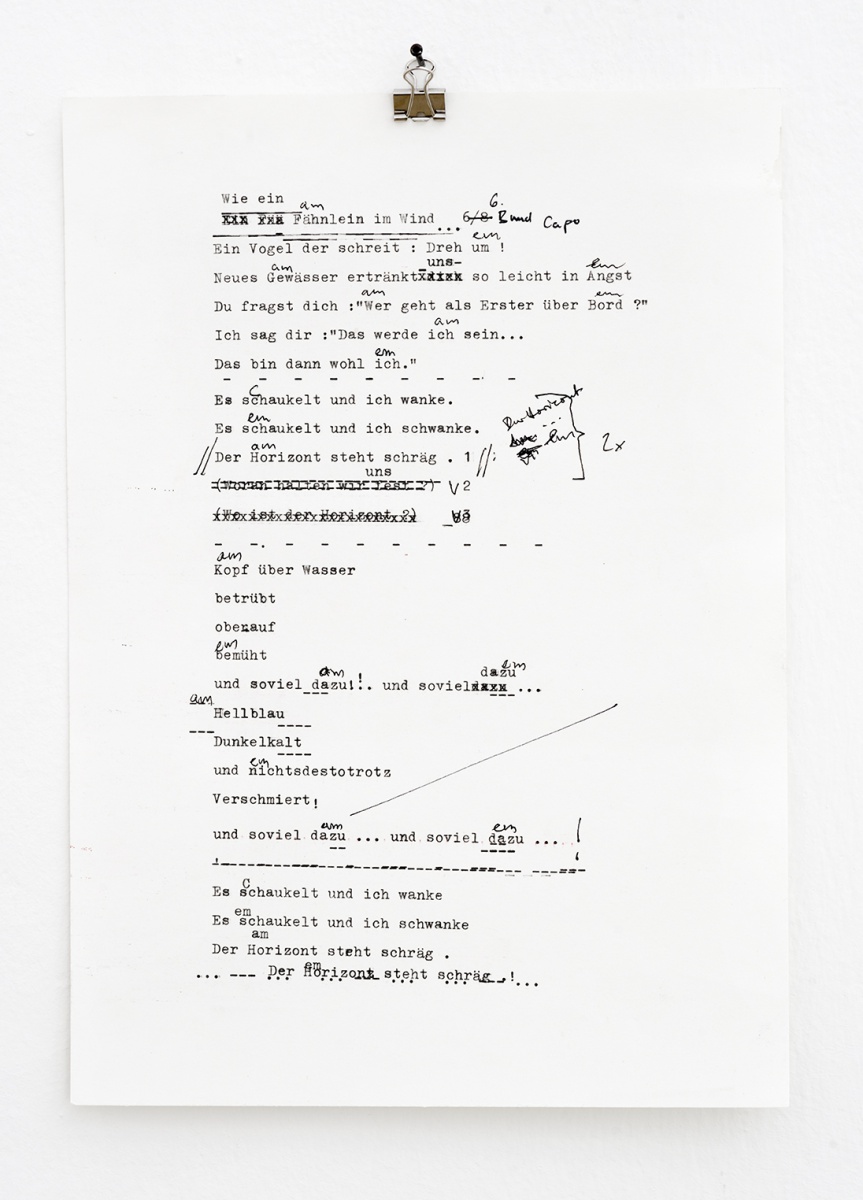 Wie ein
am 6.
xxx xxx Fähnlein im Wind ... 6/8 Bund Capo
em
Ein Vogel der schreit : Dreh um !
uns-
am em
Neues Gewässer ertränktxxxxx so leicht in Angst
am em
Du fragst dich :"Wer geht als Erster über Bord ?"
am
Ich sag dir :"Das werde ich sein...
em
Das bin dann wohl ich."
- - - - - - - - -
C
Es schaukelt und ich wanke.
em
Es schaukelt und ich schwanke.
am
// Der Horizont steht schräg . 1 //:
Der Horizont
...
em
2x
uns
(Woran halten wir fest ?) V 2
(Wo ist der Horizont ?) V3
- -. - - - - - - - -
am
Kopf über Wasser
betrübt
obenauf
em
bemüht
am ! dazu em
und soviel dazu!!.. und sovielxxxx ...
am
Hellblau
Dunkelkalt
em
und nichtsdestotrotz
Verschmiert!
am em
und soviel dazu ... und soviel dazu .... !
C
Es schaukelt und ich wanke
em
Es schaukelt und ich schwanke
am
Der Horizont steht schräg .
em
... --- Der Horizont steht schräg .!...